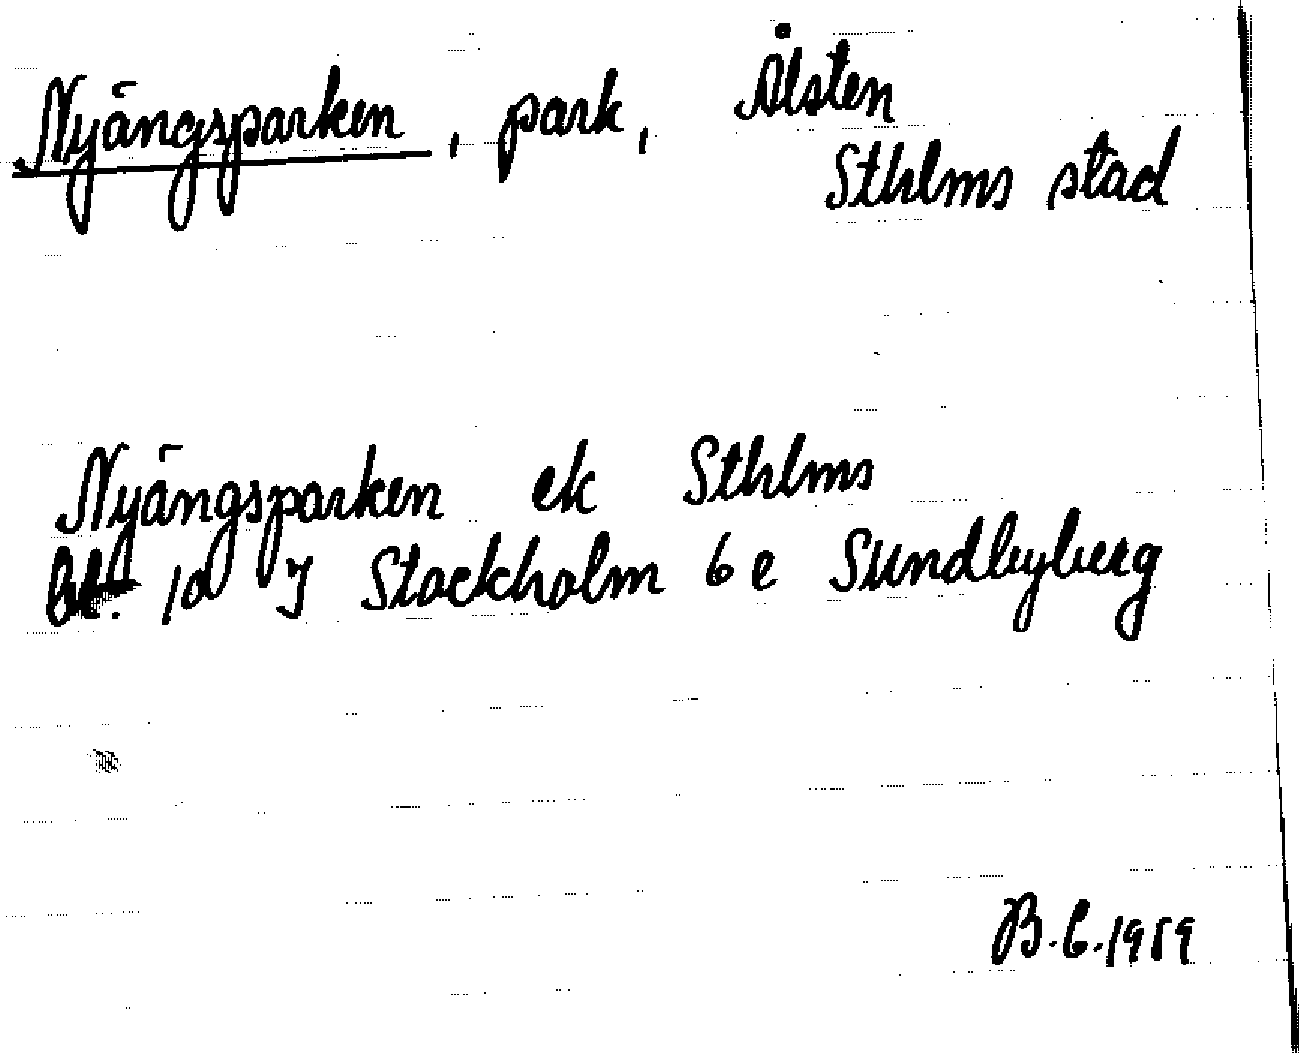 Nyängsparken, park, Ålsten
Sthlms stad
Nyängsparken ek Sthlms
bl. 10 J Stockholm 6 e Sundbyberg
B.C. 1959